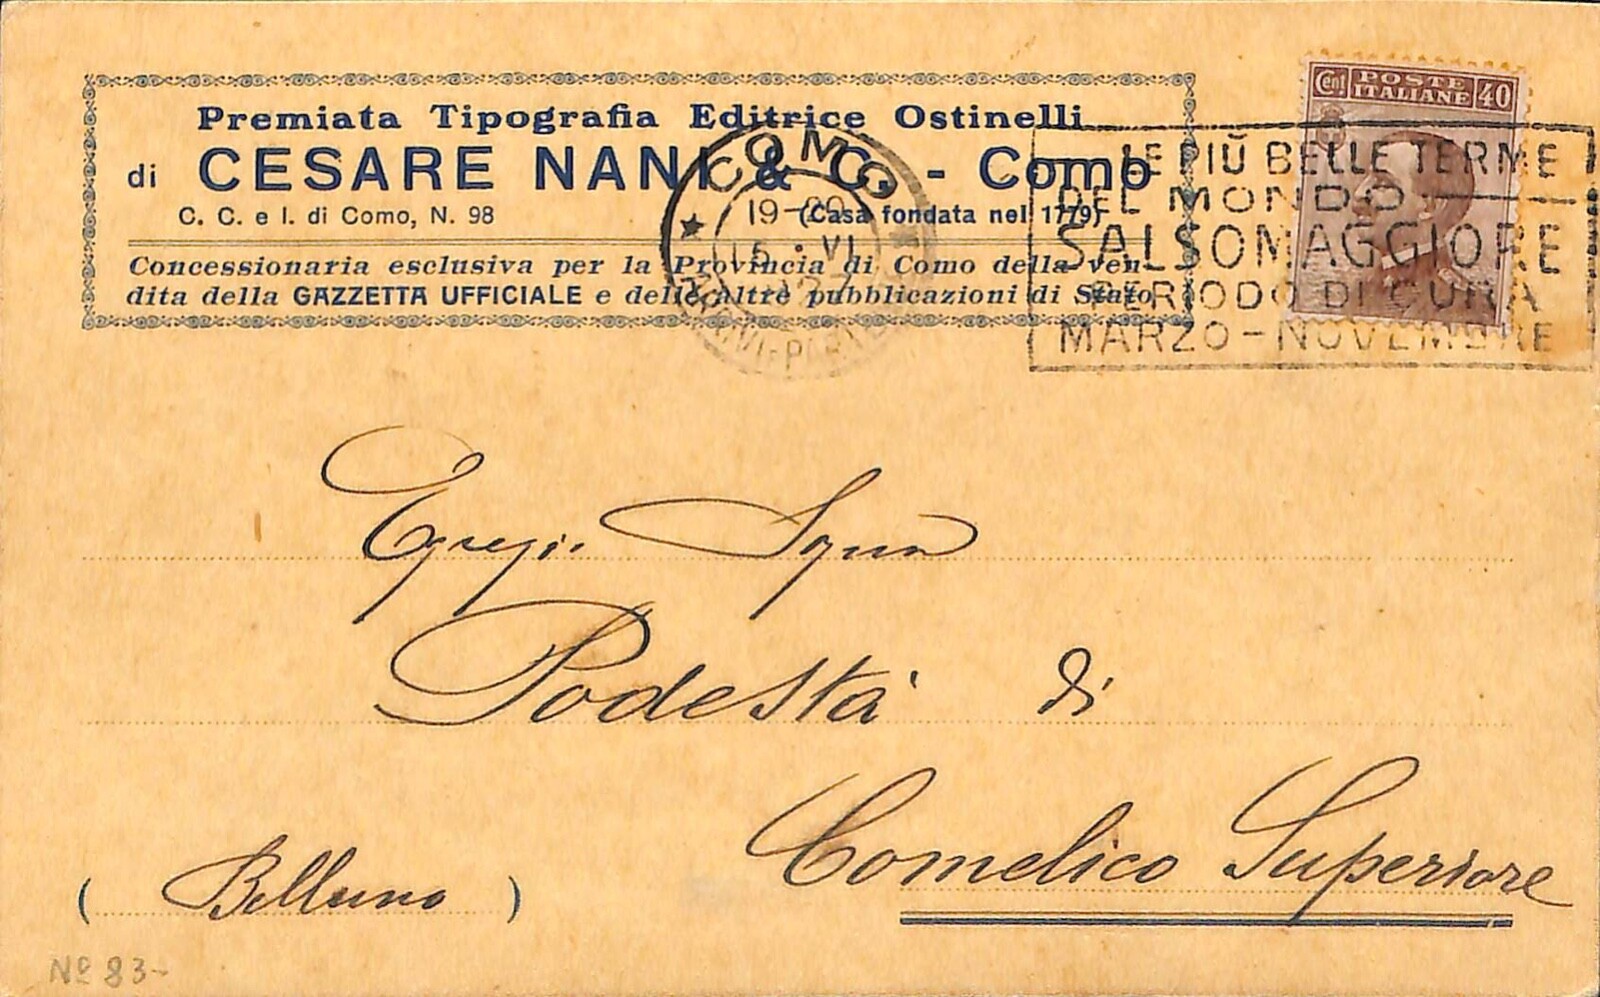 Premiata Tipografia Editrice Ostinelli
di CESARE NANI & C. - Como
C. C. e I. di Como, N. 98 (Casa fondata nel 1779)
Concessionaria esclusiva per la Provincia di Como della ven-
dita della GAZZETTA UFFICIALE e delle altre pubblicazioni di Stato
Cent POSTE ITALIANE 40
COMO
19-20
15 · VI
LE PIÙ BELLE TERME
DEL MONDO
SALSOMAGGIORE
PERIODO DI CURA
MARZO - NOVEMBRE
Egregio
Podestà di
Comelico Superiore
( Belluno )
Nº 83-